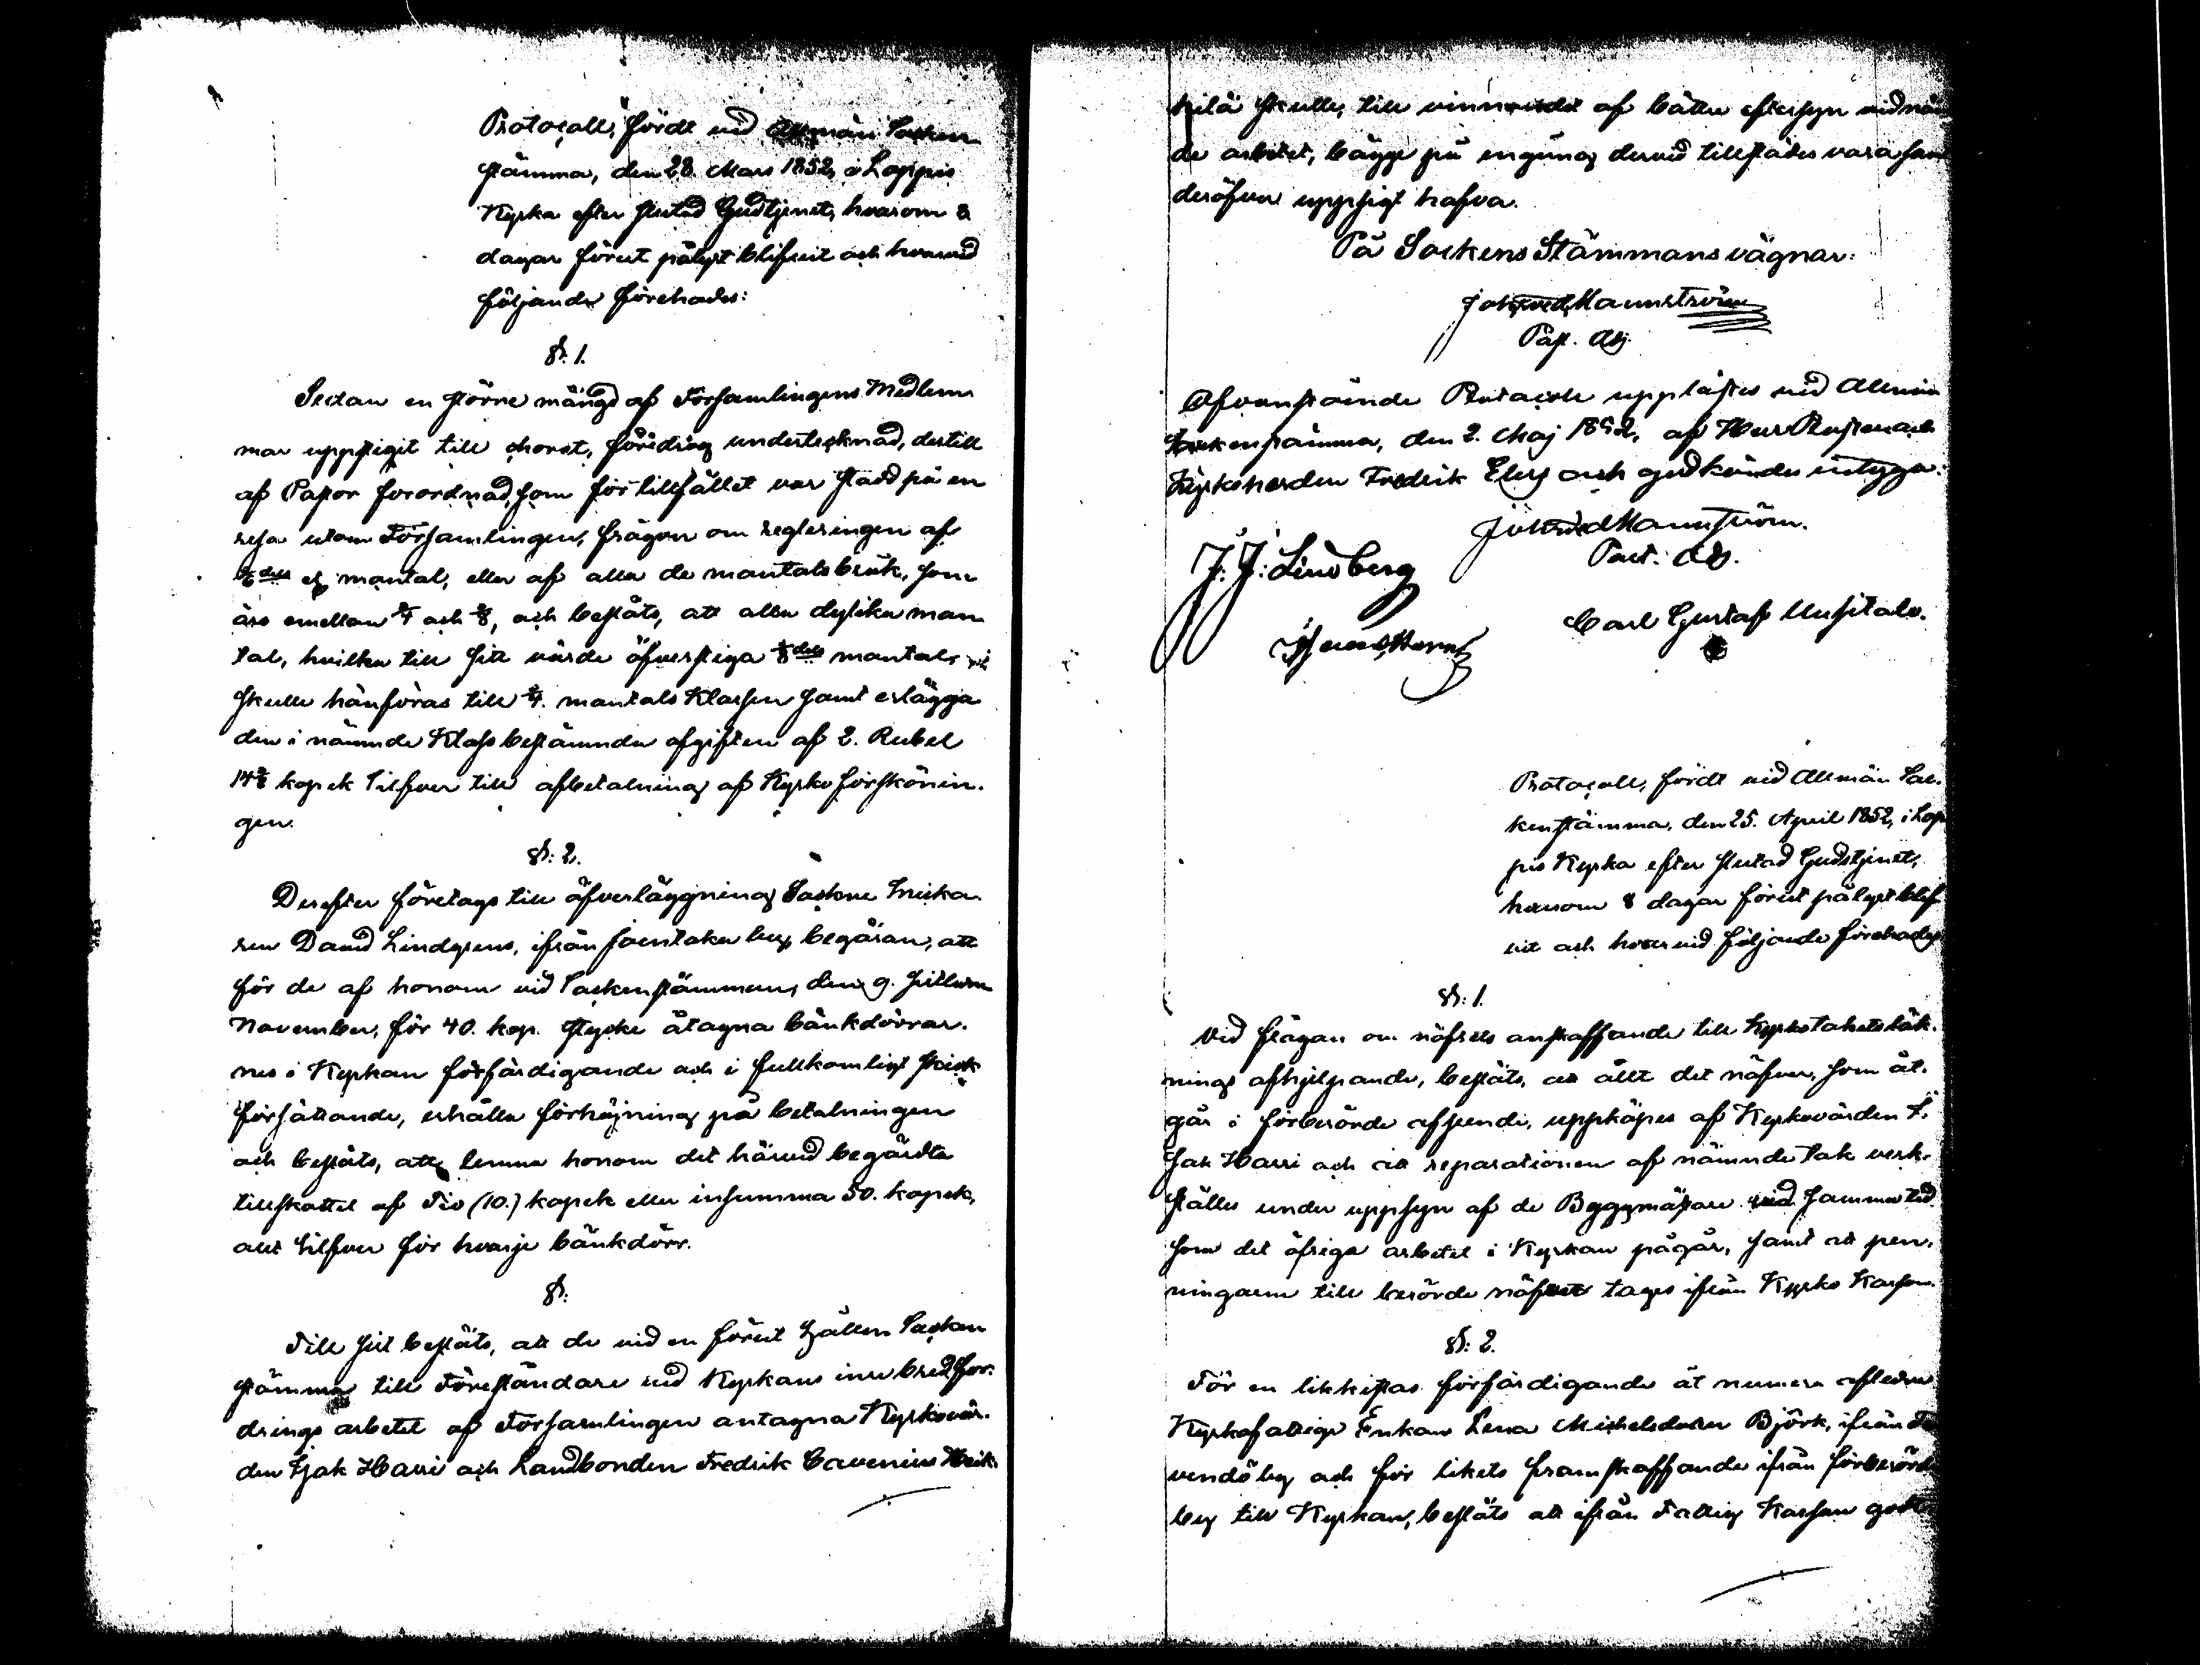 Protocoll, fördt vid Allmän Socken
stämma, den 28. Mars 1852, i Loppis
Kyrka efter slutad Gudstjenst, hvarom 8
dagar förut pålyst blifvit och hvarvid
följande förehades:
§. 1.
Sedan en större mängd af Församlingens Medlem
mar uppstigit till choret, föredrog undertecknad, dertill
af Pastor förordnad, som för tillfället var stadd på en
resa utom Församlingen, frågan om regleringen af
mantal, eller af alla de mantalsbruk, som
äro emellan 1/4 och 3/8, och beslöts, att alla dylika man
tal, hvilka till sitt värde öfverstiga dels mantal
skulle hänföras till mantals Klassen samt erlägga
den i nämnde Klass bestämnda afgiften af 2. Rubel
14 2/8 kopek Silfver till afbetalning af Kyrko förskönin.
gen.
§: 2.
Derefter företogs till öfverläggning Sockne Snicka
ren David Lindgrens, ifrån Joentaka by, begäran, att
för de af honom vid Sockenstämman, den 9. sistledne
November, för 40. kop. stycke åtagna bänkdörrar.
nes i Kyrkan förfärdigande och i fullkomligt skick
försättande, erhålla förhöjning på betalningen
och beslöts, att lemna honom det härvid begärdta
tillskottet af Tio (10.) kopek eller insumma 50. kopek,
allt Silfver för hvarje bänkdörr.
§:
Till slut beslöts, att de vid en förut hållen Socken
stämma till Föreståndare vid Kyrkans inre
drings arbetet af Församlingen antagna Kyrkovär.
den Isak Harri och Landbonden Fredrik Cavenius Heik
kilä skulle, till vinnandet af bättre eftersyn vid näm
de arbetet, bägge på en gång dervid tillstädes vara sam
deröfver uppsigt hafva.
På Sockens Stämmans vägnar:
Joh. Fred. Mannström
Past. Adj.
Ofvanstående Protocoll upplästes vid Allmän
Sockenstämma, den 2. Maj 1852, af Herr Prosten och
Kyrkoherden Fredrik Elg och godkändes intyga:
Joh. Fred. Mannström.
Past. Adj.
J. J. Lindberg
Carl Gustaf Uusitalo.
Protocoll, fördt vid Allmän Soc.
kenstämma, den 25. April 1852, i Lop
pis Kyrka efter slutad Gudstjenst,
hvarom 8 dagar förut pålyst blif
vit och hvarvid följande förehades
§: 1.
Vid frågan om näfrets anskaffande till Kyrkotakets läk.
nings afhjelpande, beslöts, att allt det näfver, som åt.
går i förberörde afseende, uppköpes af Kyrkovärden I.
sak Harri och att reparationen af nämnde Tak verk.
ställes under uppsyn af de Byggmästare vid samma tid
som det öfriga arbetet i Kyrkan pågår, samt att pen.
ningarne till berörde näfver tages ifrån Kyrko Kassan.
§: 2.
För en likkistas förfärdigande åt numera afledne
Kyrkofattige Enkan Lena Michelsdotter Björk, ifrån
by och för likets framskaffande ifrån förberörde
by till Kyrkan, beslöts att ifrån Fattig Kassan